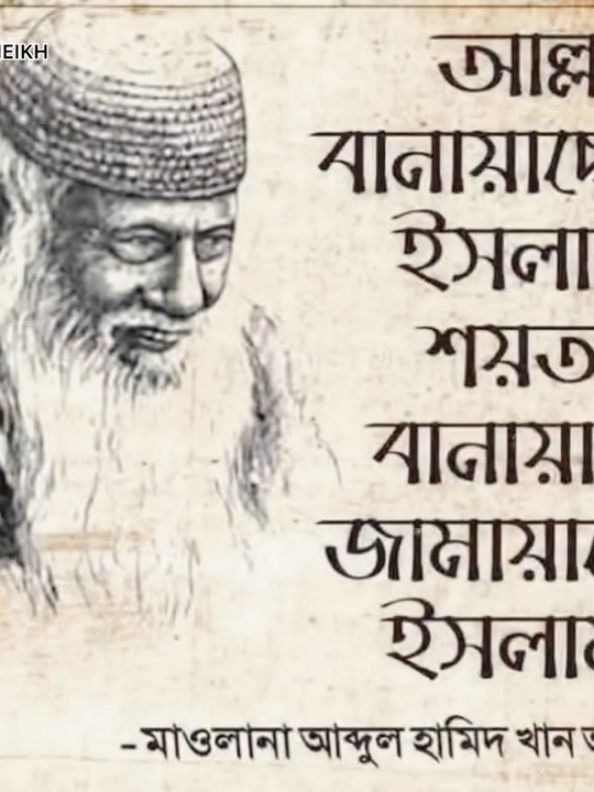 EIKH
আল্ল
বানায়াছে
ইসলা
শয়ত
বানায়া
জামায়া
ইসলা
- মাওলানা আব্দুল হামিদ খান